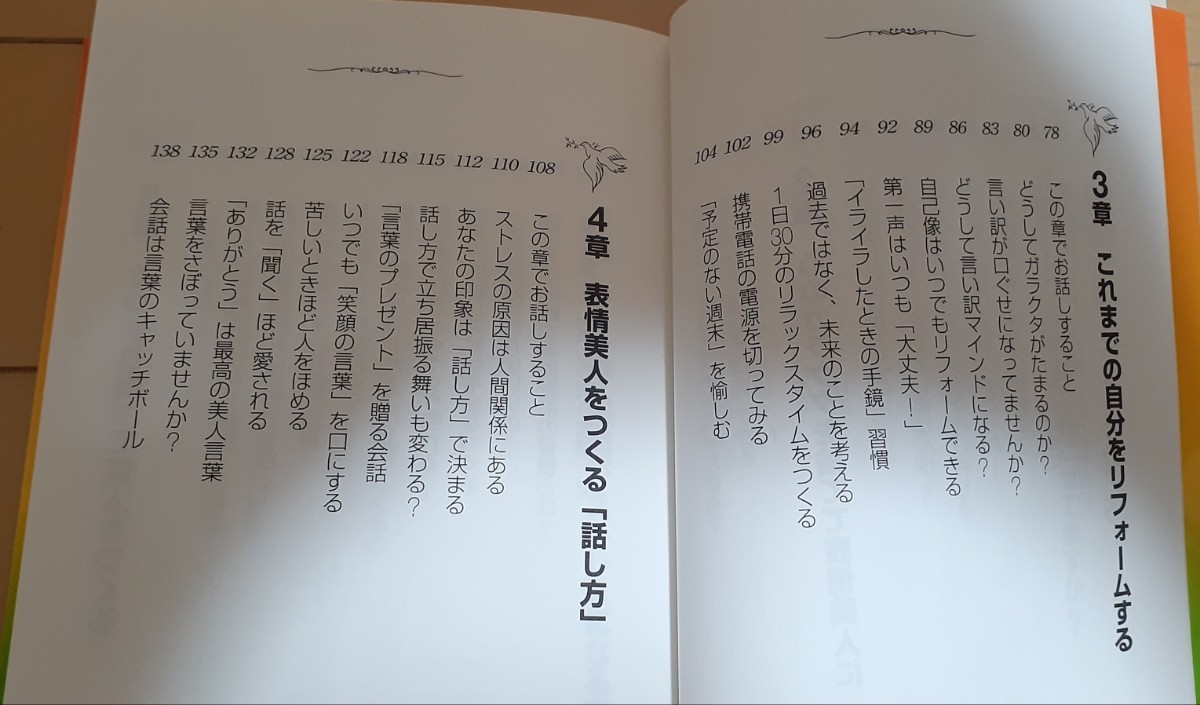 3章 これまでの自分をリフォームする
この章でお話しすること 78
どうしてガラクタがたまるのか? 80
言い訳が口ぐせになってませんか? 83
どうして言い訳マインドになる? 86
自己像はいつでもリフォームできる 89
第一声はいつも「大丈夫!」 92
「イライラしたときの手鏡」習慣 94
過去ではなく、未来のことを考える 96
1日30分のリラックスタイムをつくる 99
携帯電話の電源を切ってみる 102
「予定のない週末」を愉しむ 104
4章 表情美人をつくる「話し方」
この章でお話しすること 108
ストレスの原因は人間関係にある 110
あなたの印象は「話し方」で決まる 112
話し方で立ち居振る舞いも変わる? 115
「言葉のプレゼント」を贈る会話 118
いつでも「笑顔の言葉」を口にする 122
苦しいときほど人をほめる 125
話を「聞く」ほど愛される 128
「ありがとう」は最高の美人言葉 132
言葉をさぼっていませんか? 135
会話は言葉のキャッチボール 138